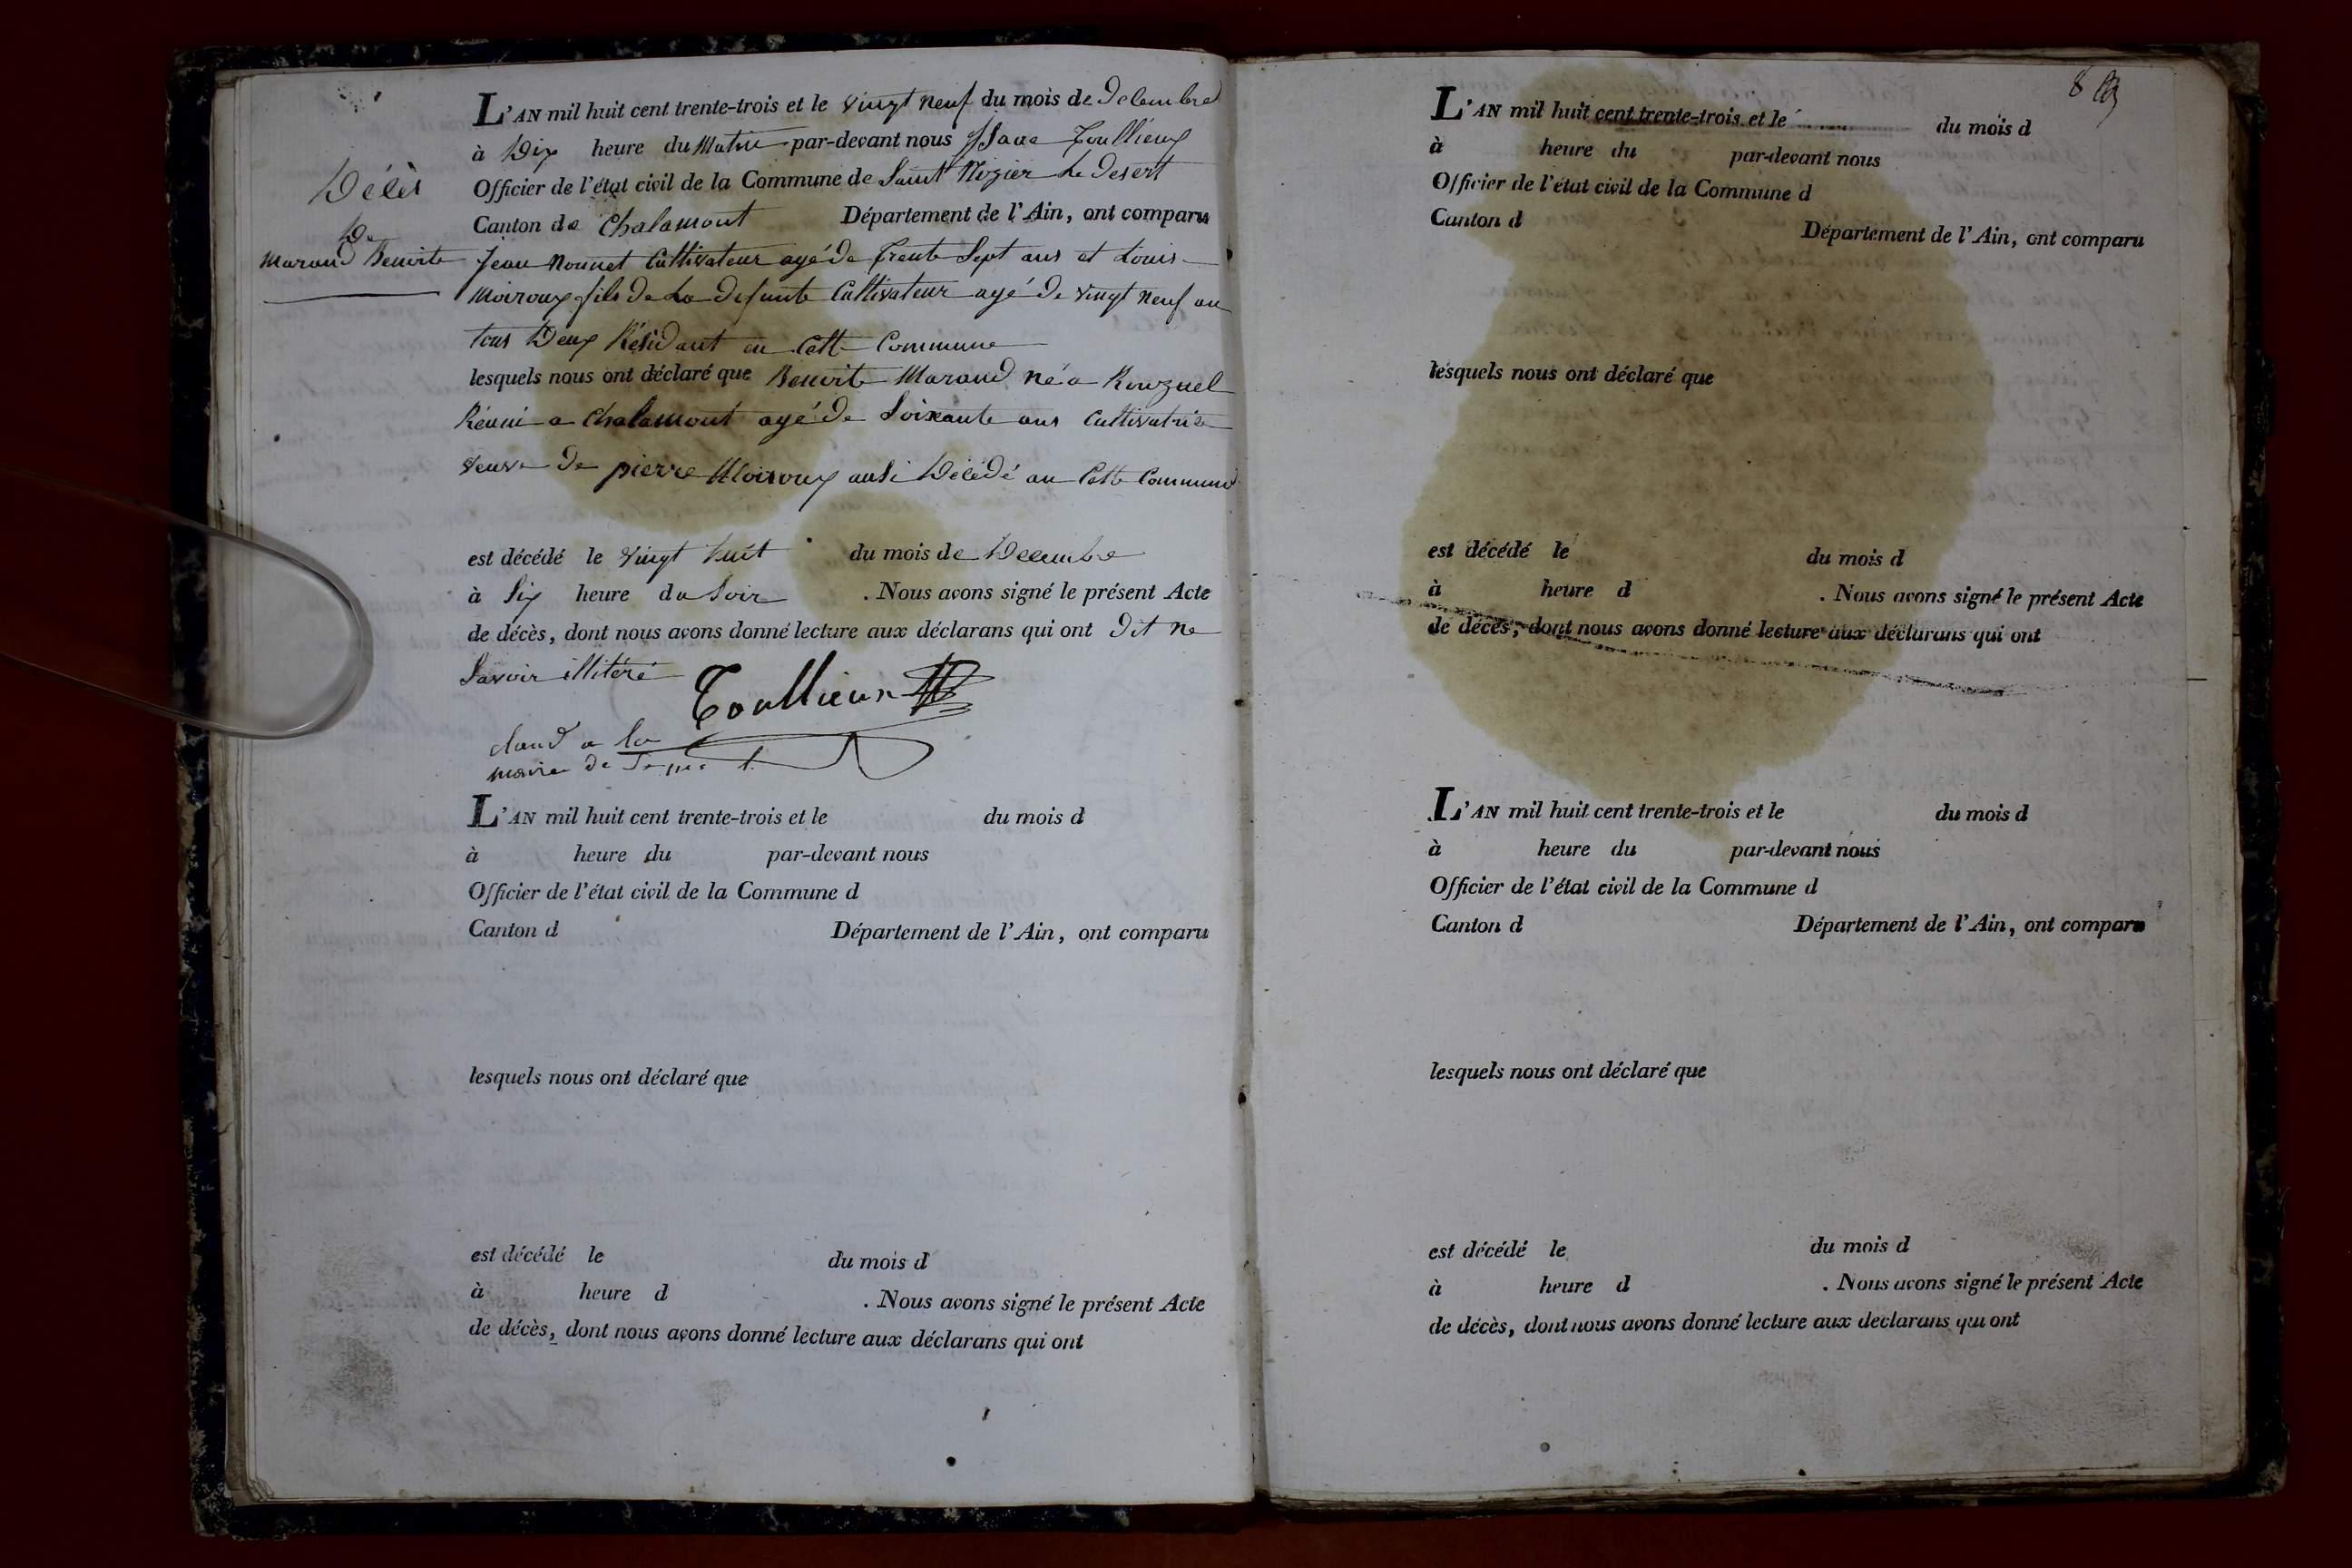 L'AN mil huit cent trente-trois et le vingt neuf du mois de decembre
à Dix heure du Matin par-devant nous Toullieux
Officier de l'état civil de la Commune de Saint Nizier Le Desert
Canton de Chalamont Département de l'Ain, ont comparu
Décès
De
Maraud Benoite
Jean Nonnet Cultivateur agé de Trente Sept ans et Louis
Moiroux fils de La defunte Cultivateur agé de vingt neuf an
tous Deux Résidant en Cette Commune
lesquels nous ont déclaré que Benoite Maraud né a Ronzuel
Réuni a Chalamont agé de Soixante ans Cultivatrice
veuve De pierre Moiroux ausi Décédé an Cette Commune
est décédé le vingt huit du mois de Decembre
à Six heure du Soir . Nous avons signé le présent Acte
de décès, dont nous avons donné lecture aux déclarans qui ont Dit ne
Savoir illitéré
Toullieux
a la
maire de
L'AN mil huit cent trente-trois et le du mois d
à heure du par-devant nous
Officier de l'état civil de la Commune d
Canton d Département de l'Ain, ont comparu
lesquels nous ont déclaré que
est décédé le du mois d
à heure d . Nous avons signé le présent Acte
de décès, dont nous avons donné lecture aux déclarans qui ont
8
L'AN mil huit cent trente-trois et le du mois d
à heure du par-devant nous
Officier de l'état civil de la Commune d
Canton d Département de l'Ain, ont comparu
lesquels nous ont déclaré que
est décédé le du mois d
à heure d . Nous avons signé le présent Acte
de décès, dont nous avons donné lecture aux déclarans qui ont
L'AN mil huit cent trente-trois et le du mois d
à heure du par-devant nous
Officier de l'état civil de la Commune d
Canton d Département de l'Ain, ont comparu
lesquels nous ont déclaré que
est décédé le du mois d
à heure d . Nous avons signé le présent Acte
de décès, dont nous avons donné lecture aux declarans qui ont